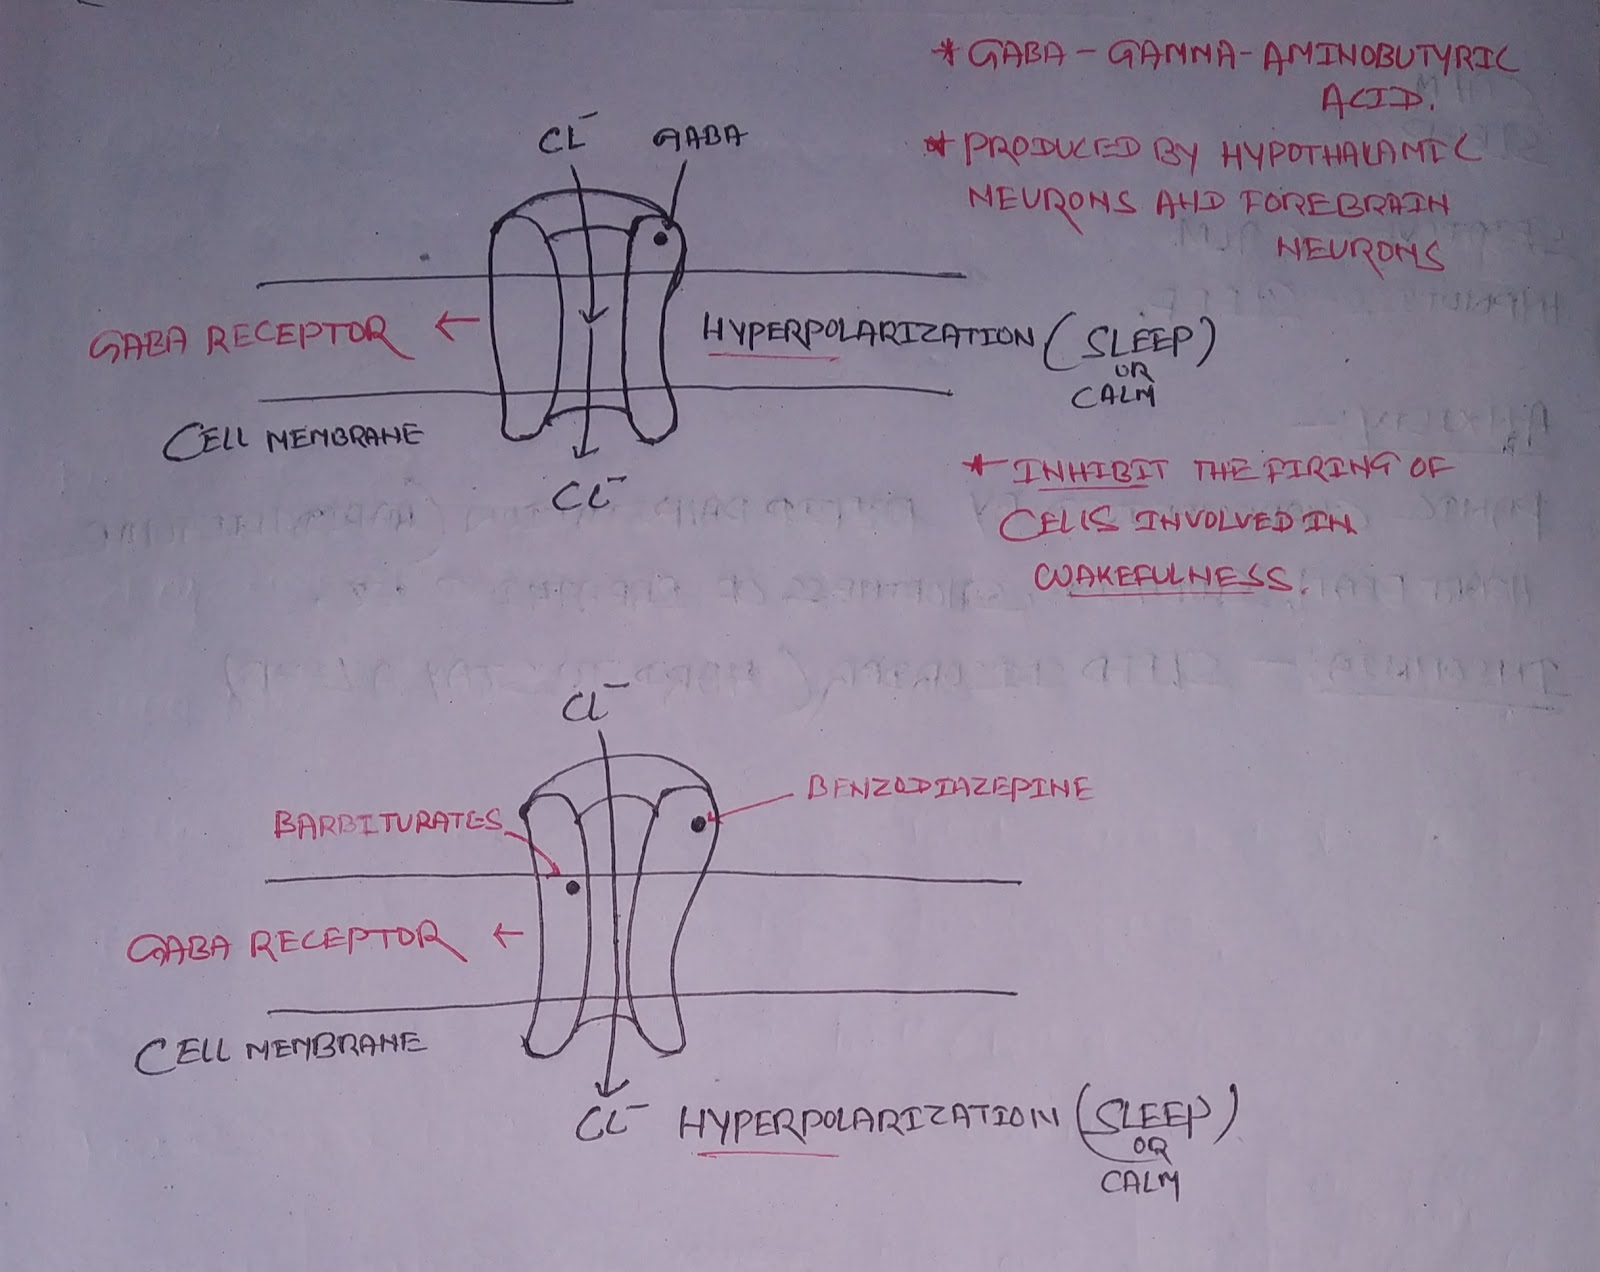 * GABA - GAMMA-AMINOBUTYRIC
ACID.
* PRODUCED BY HYPOTHALAMIC
NEURONS AND FOREBRAIN
NEURONS
CL⁻ GABA
GABA RECEPTOR ←
HYPERPOLARIZATION (SLEEP)
OR
CALM
CELL MEMBRANE
CL⁻
* INHIBIT THE FIRING OF
CELLS INVOLVED IN
WAKEFULNESS.
CL⁻
BARBITURATES
BENZODIAZEPINE
GABA RECEPTOR ←
CELL MEMBRANE
CL⁻ HYPERPOLARIZATION (SLEEP)
OR
CALM